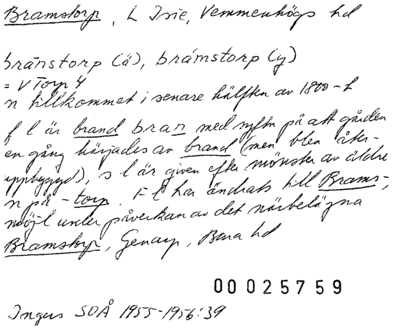 Bramstorp, L Isie, Vemmenhögs hd
bránstorp (ä), brámstorp (y)
= V Torp 4
n tillkommet i senare hälften av 1800-t
f l är brand bran med syftn på att gården
en gång härjades av brand (men blev åter-
uppbyggd), s l är given efter mönster av äldre
n på -torp. F l har ändrats till Brams-,
möjl under påverkan av det närbelägna
Bramstorp, Genarp, Bara hd
00025759
Ingers SOÅ 1955-1956:39